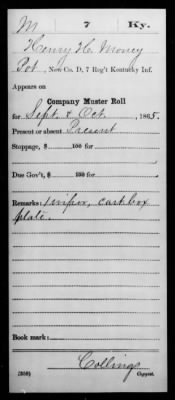 M 7 Ky.
Henry H. Money
Pvt, New Co. D, 7 Reg't Kentucky Inf.
Appears on
Company Muster Roll
for Sept & Oct, 1865.
Present or absent Present
Stoppage, $ 100 for
Due Gov't, $ 100 for
Remarks: 1 cart box
plate.
Book mark:
Collings
(358) Copyist.